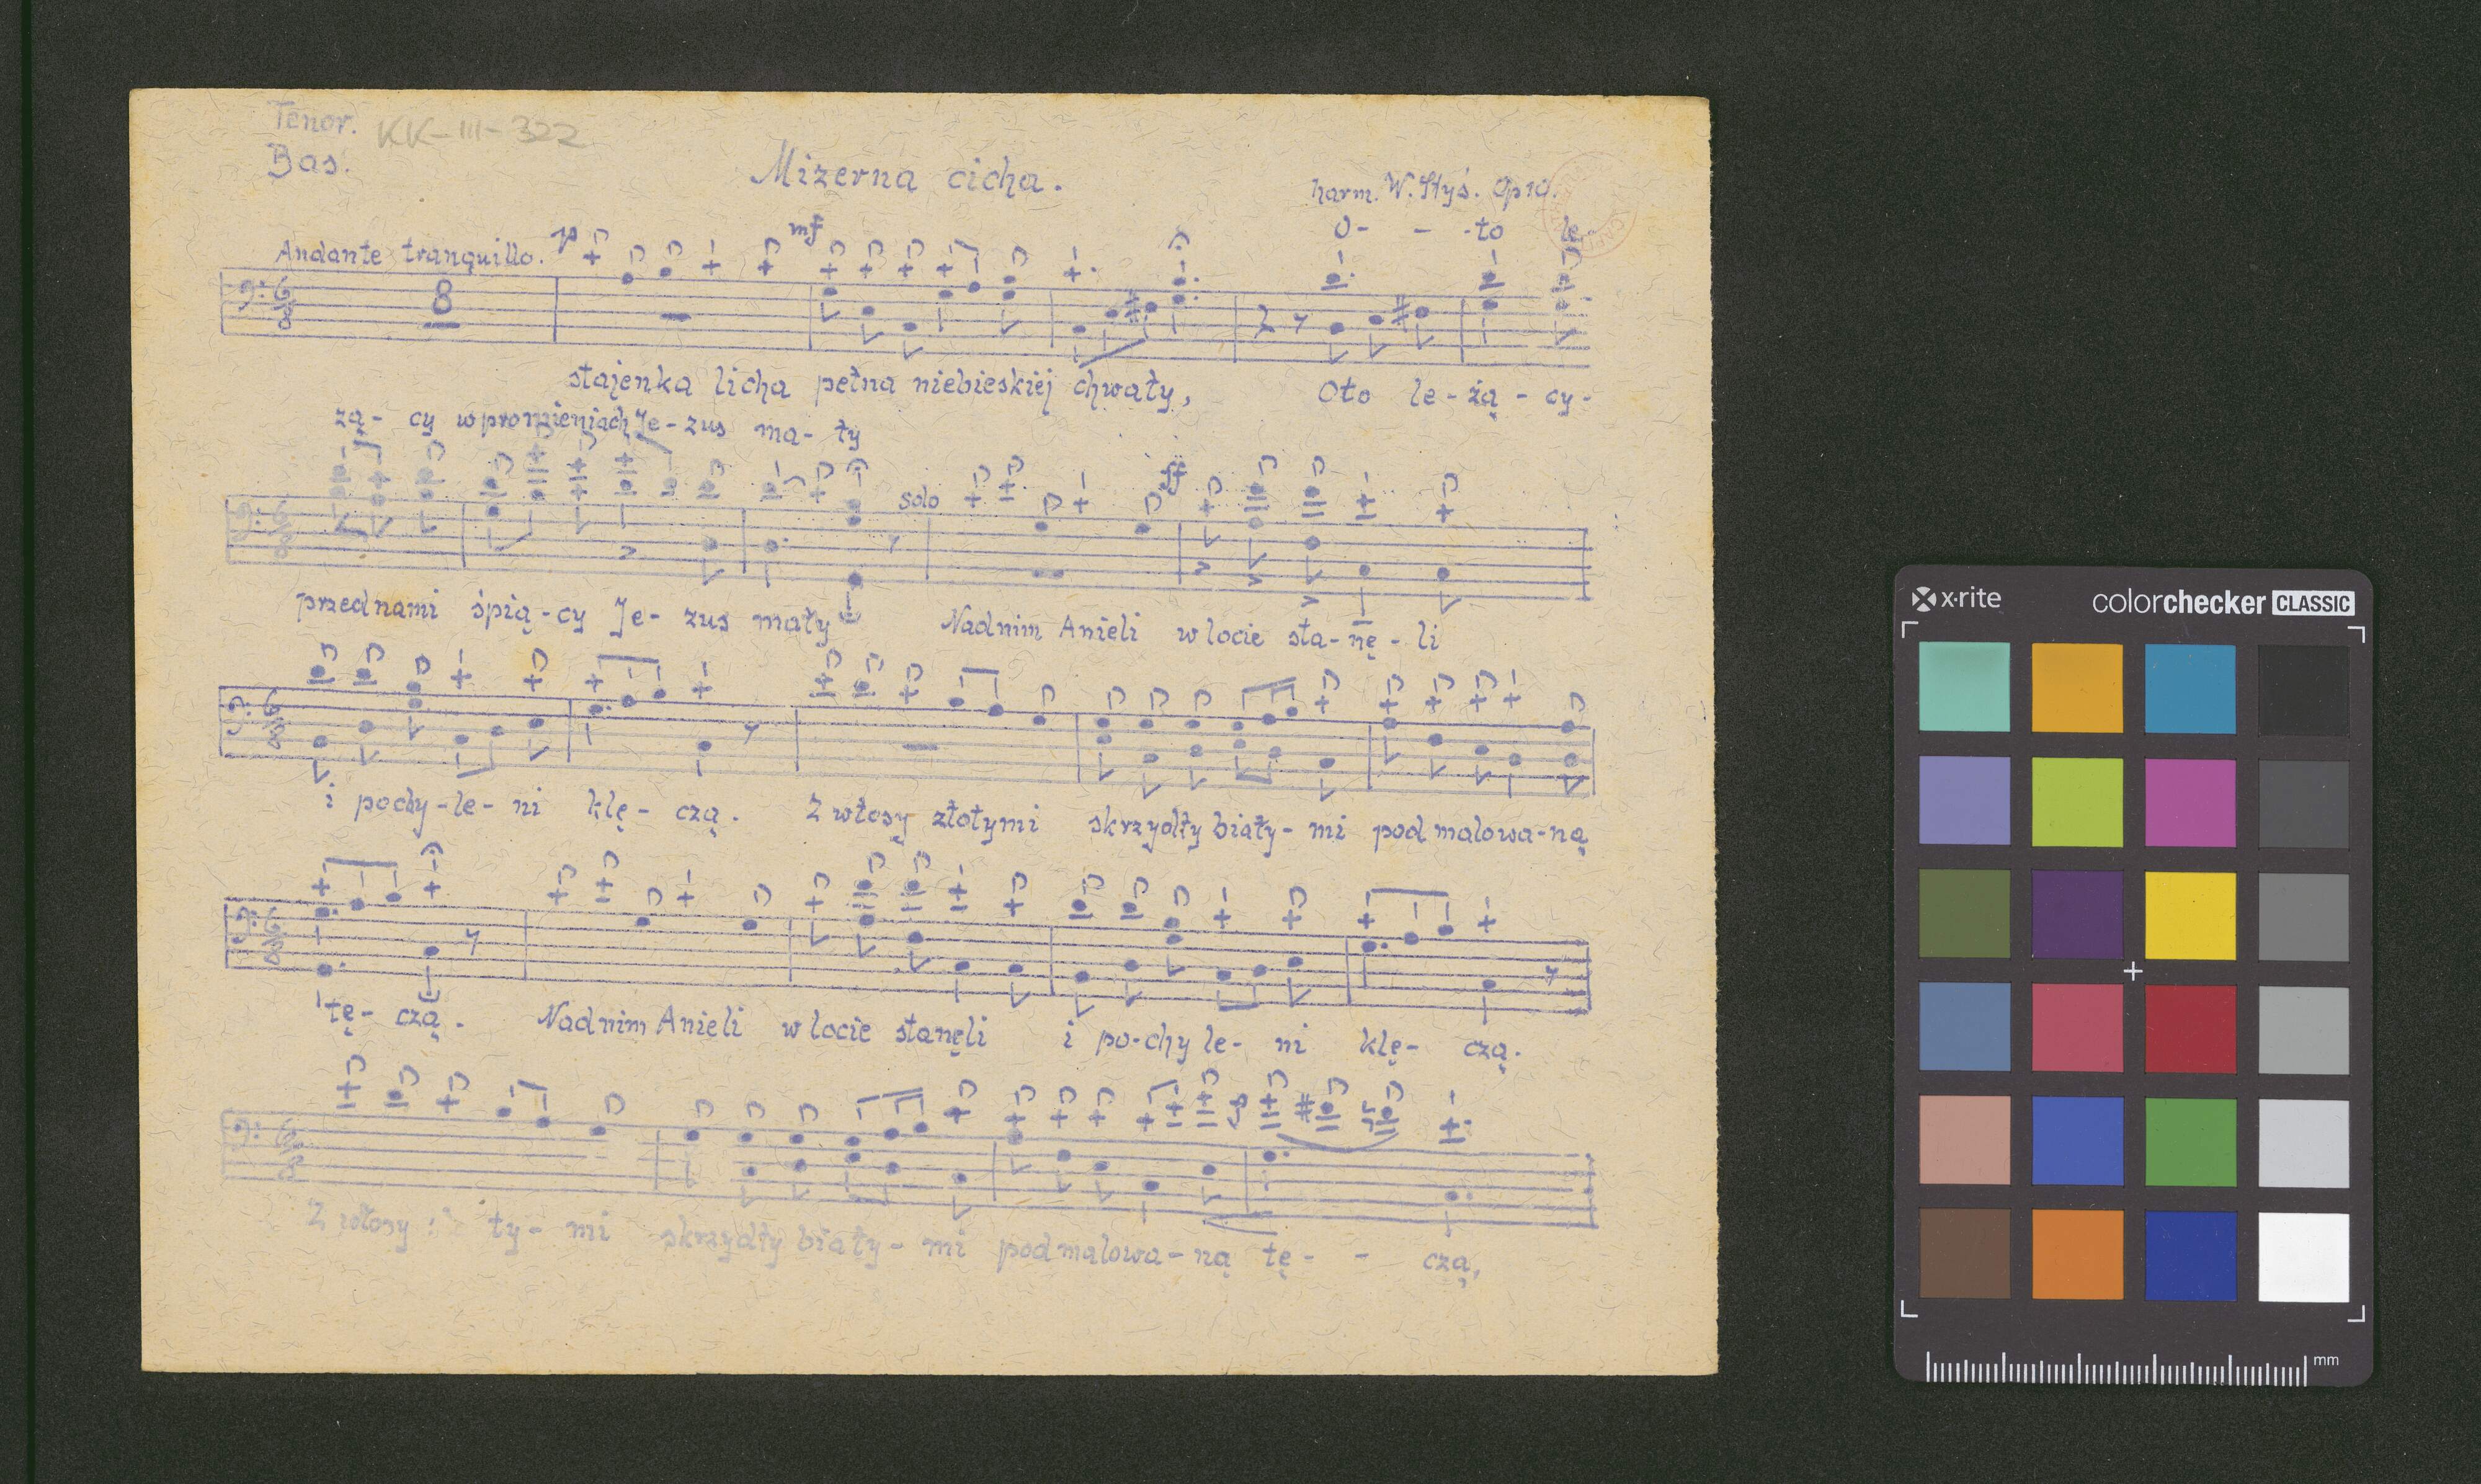 Tenor. KK-III-322
Bas.
Mizerna cicha.
harm. W. Styś. Op 10.
O - - to le-
Andante tranquillo. p mf
8
stajenka licha pełna niebieskiej chwały, Oto le - żą - cy -
żą - cy w promieniach Je - zus ma - ły
solo ff
przed nami śpią - cy Je - zus mały Nad nim Anieli w locie sta - nę - li
i pochy - le - ni klę - czą. Z włosy złotymi skrzydły biały - mi pod malowa - ną
tę - czą. Nad nim Anieli w locie stanęli i po - chy le - ni klę - czą.
Z włosy ty - mi skrzydły biały - mi pod malowa - ną tę - - czą,
x·rite colorchecker CLASSIC
mm